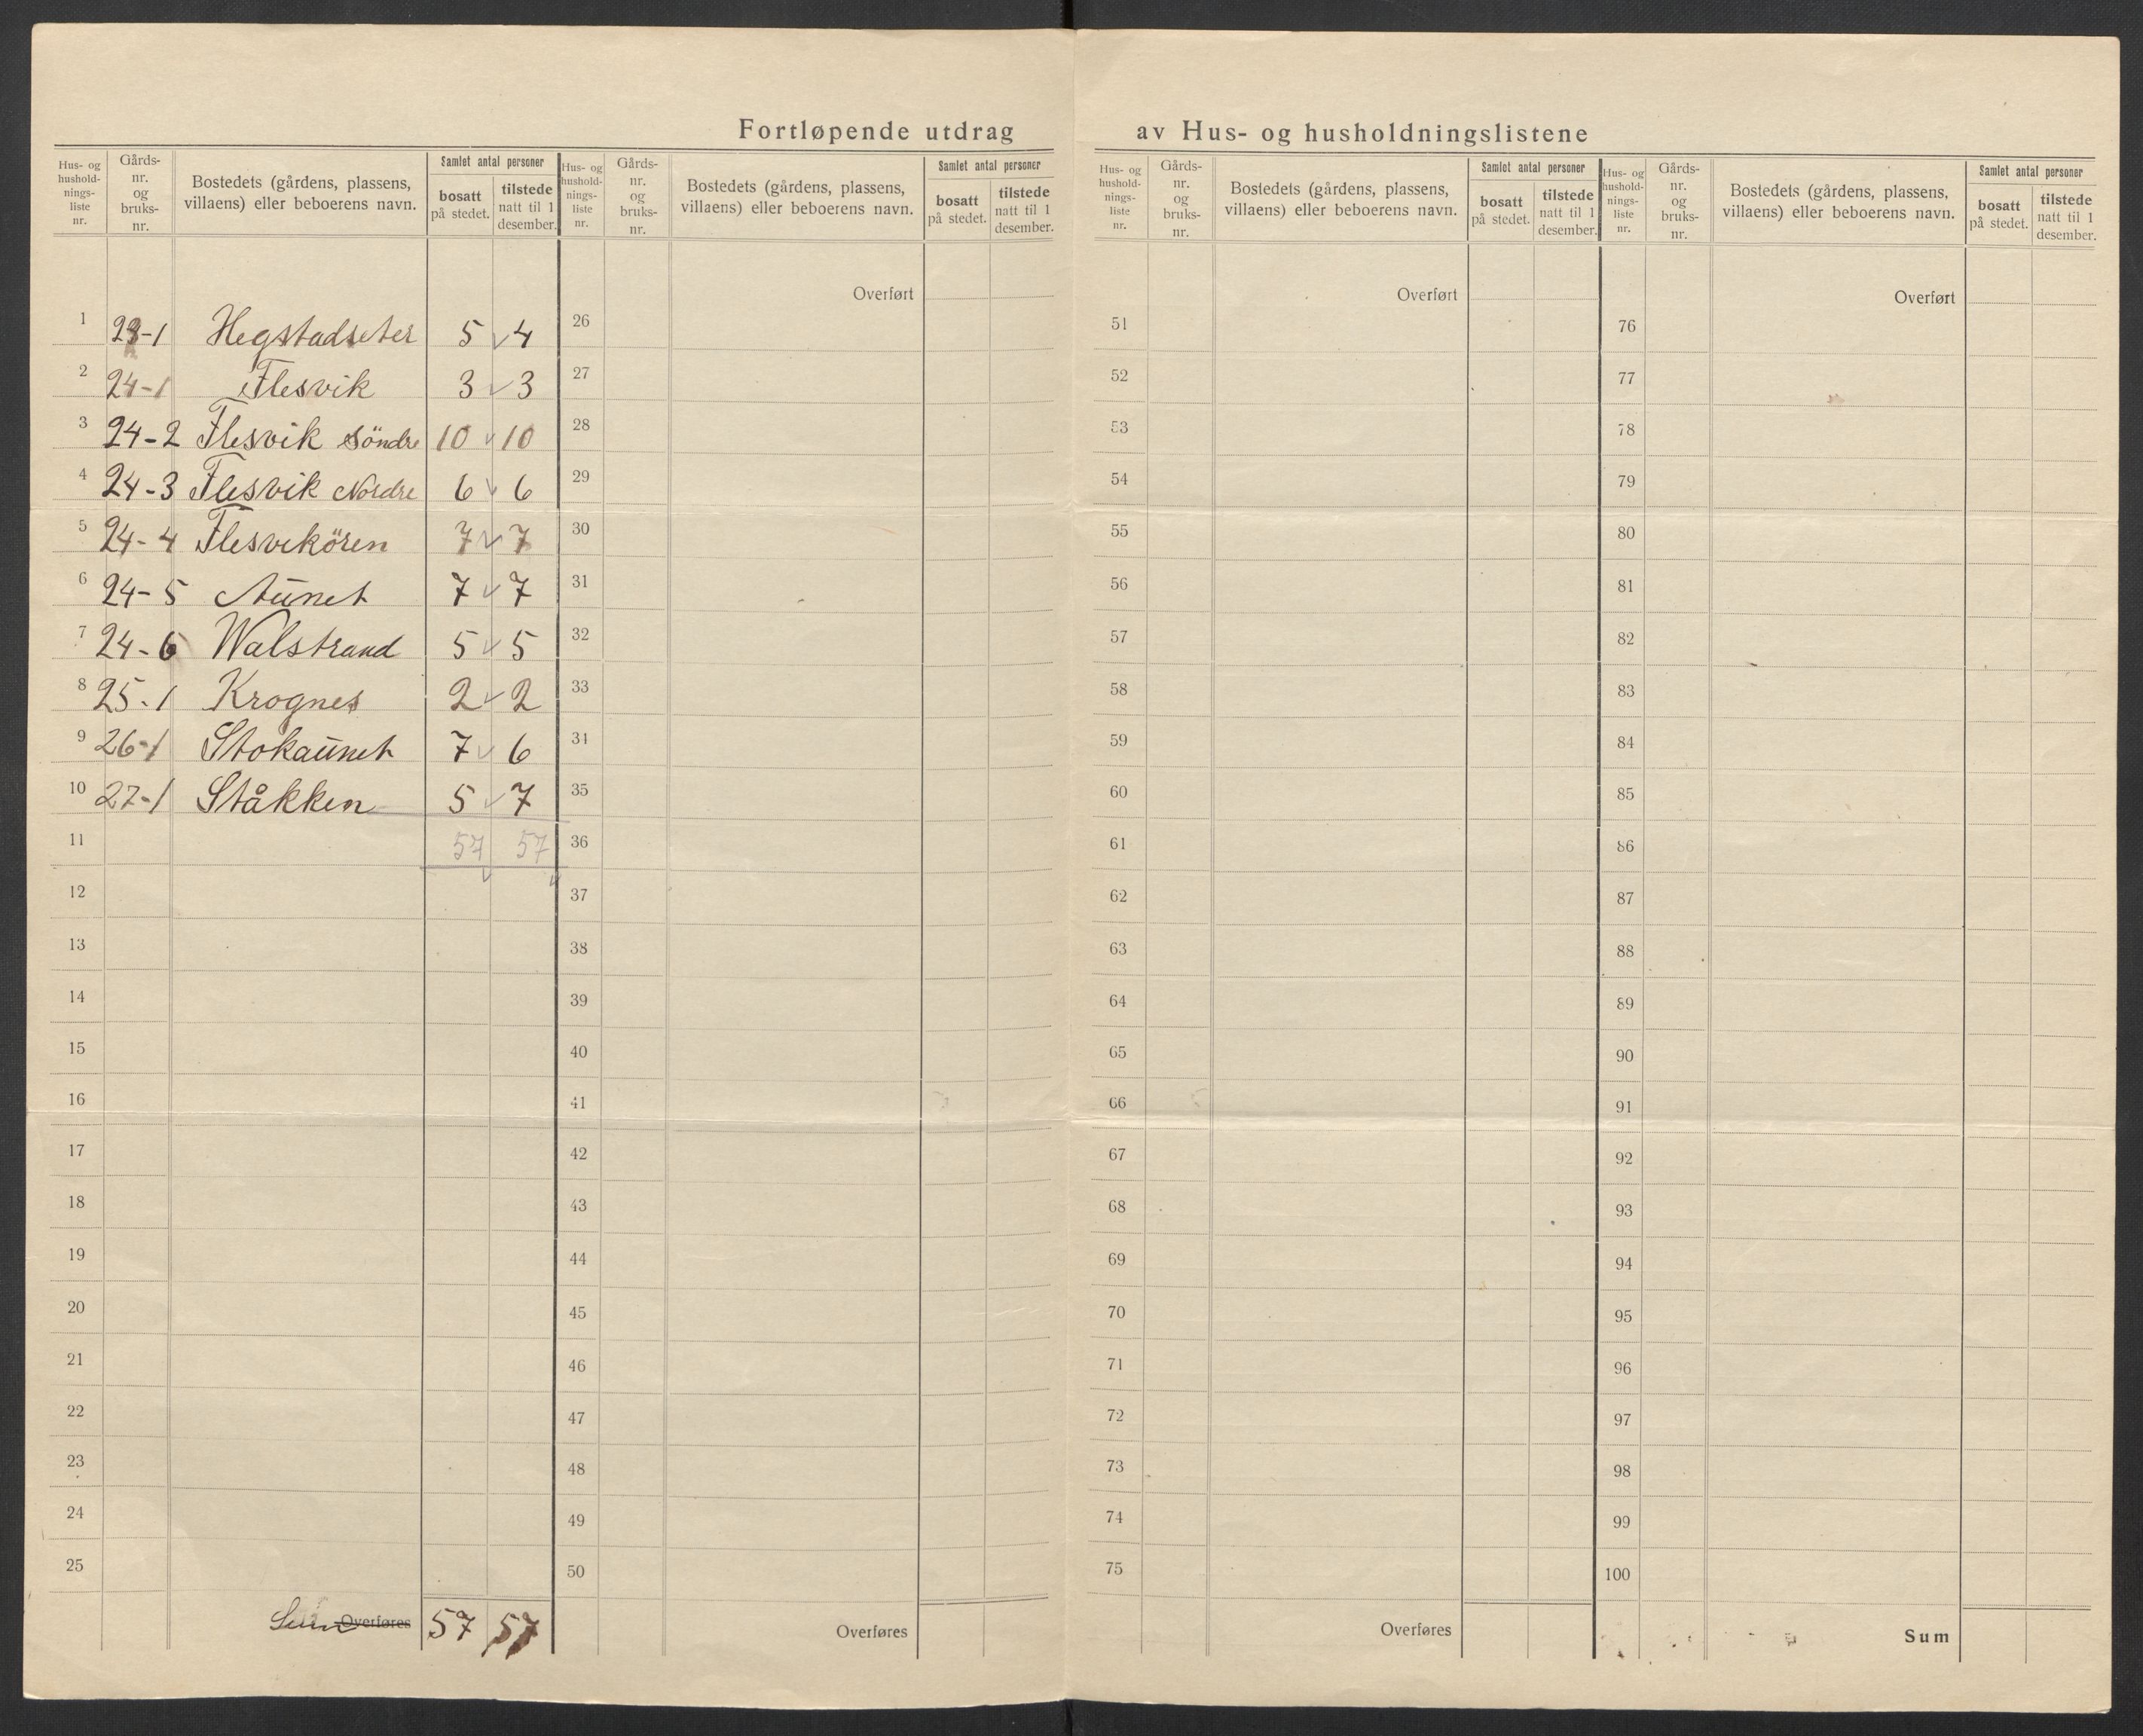 Fortløpende utdrag av Hus- og husholdningslistene
Hus- og husholdningsliste nr. | Gårds-nr. og bruks-nr. | Bostedets (gårdens, plassens, villaens) eller beboerens navn. | Samlet antal personer | bosatt på stedet. | tilstede natt til 1 desember.
Hus- og husholdningsliste nr. | Gårds-nr. og bruks-nr. | Bostedets (gårdens, plassens, villaens) eller beboerens navn. | Samlet antal personer | bosatt på stedet. | tilstede natt til 1 desember.
Hus- og husholdningsliste nr. | Gårds-nr. og bruks-nr. | Bostedets (gårdens, plassens, villaens) eller beboerens navn. | Samlet antal personer | bosatt på stedet. | tilstede natt til 1 desember.
Hus- og husholdningsliste nr. | Gårds-nr. og bruks-nr. | Bostedets (gårdens, plassens, villaens) eller beboerens navn. | Samlet antal personer | bosatt på stedet. | tilstede natt til 1 desember.
1 23-1 Hegstadseter 5 4
2 24-1 Flesvik 3 3
3 24-2 Flesvik Söndre 10 10
4 24-3 Flesvik Nordre 6 6
5 24-4 Flesvikören 7 7
6 24-5 Aunet 7 7
7 24-6 Walstrand 5 5
8 25-1 Krognes 2 2
9 26-1 Stokaunet 7 6
10 27-1 Ståkken 5 7
11 57 57
12
13
14
15
16
17
18
19
20
21
22
23
24
25
Sum Overføres 57 57
Overført
26
27
28
29
30
31
32
33
34
35
36
37
38
39
40
41
42
43
44
45
46
47
48
49
50
Overføres
Overført
51
52
53
54
55
56
57
58
59
60
61
62
63
64
65
66
67
68
69
70
71
72
73
74
75
Overføres
Overført
76
77
78
79
80
81
82
83
84
85
86
87
88
89
90
91
92
93
94
95
96
97
98
99
100
Sum